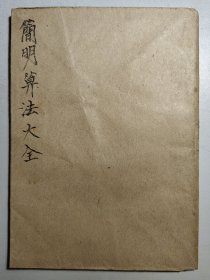 簡明算法大全